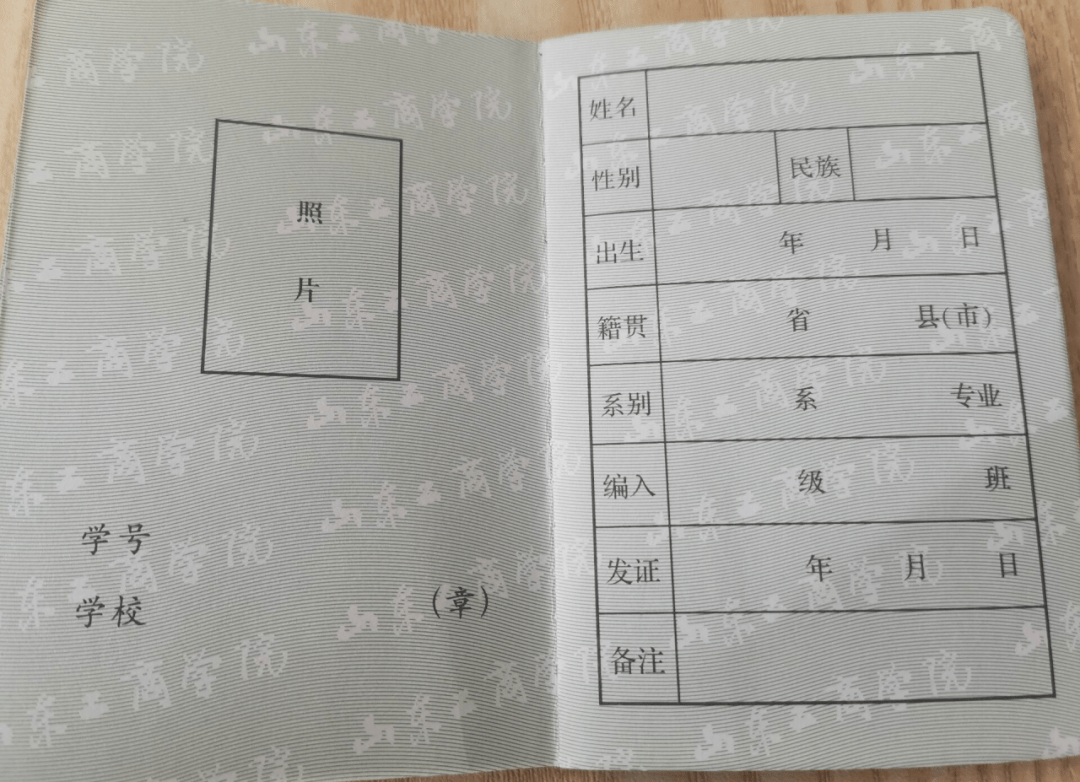 山东工商学院
照
片
学号
学校 (章)
姓名
性别 民族
出生 年 月 日
籍贯 省 县(市)
系别 系 专业
编入 级 班
发证 年 月 日
备注